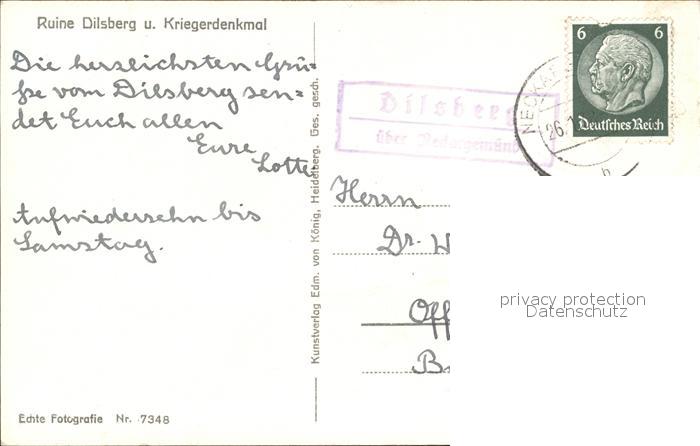 Ruine Dilsberg u. Kriegerdenkmal
Die herzlichsten Grü=
ße vom Dilsberg sen=
det Euch allen
Eure
Lotte
Aufwiedersehn bis
Samstag.
Echte Fotografie Nr. 7348
Kunstverlag Edm. von König, Heidelberg. Ges. gesch.
Dilsberg
über Neckargemünd
6 6
Deutsches Reich
Herrn
Dr. W
Off
B
privacy protection
Datenschutz